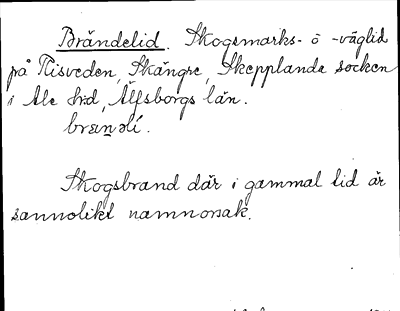 Brändelid. Skogsmarks- o -väglid
på Risveden, Skångre, Skepplanda socken
i Ale h:d, Älfsborgs län.
brɛnəlí.
Skogsbrand där i gammal tid är
sannolikt namnorsak.